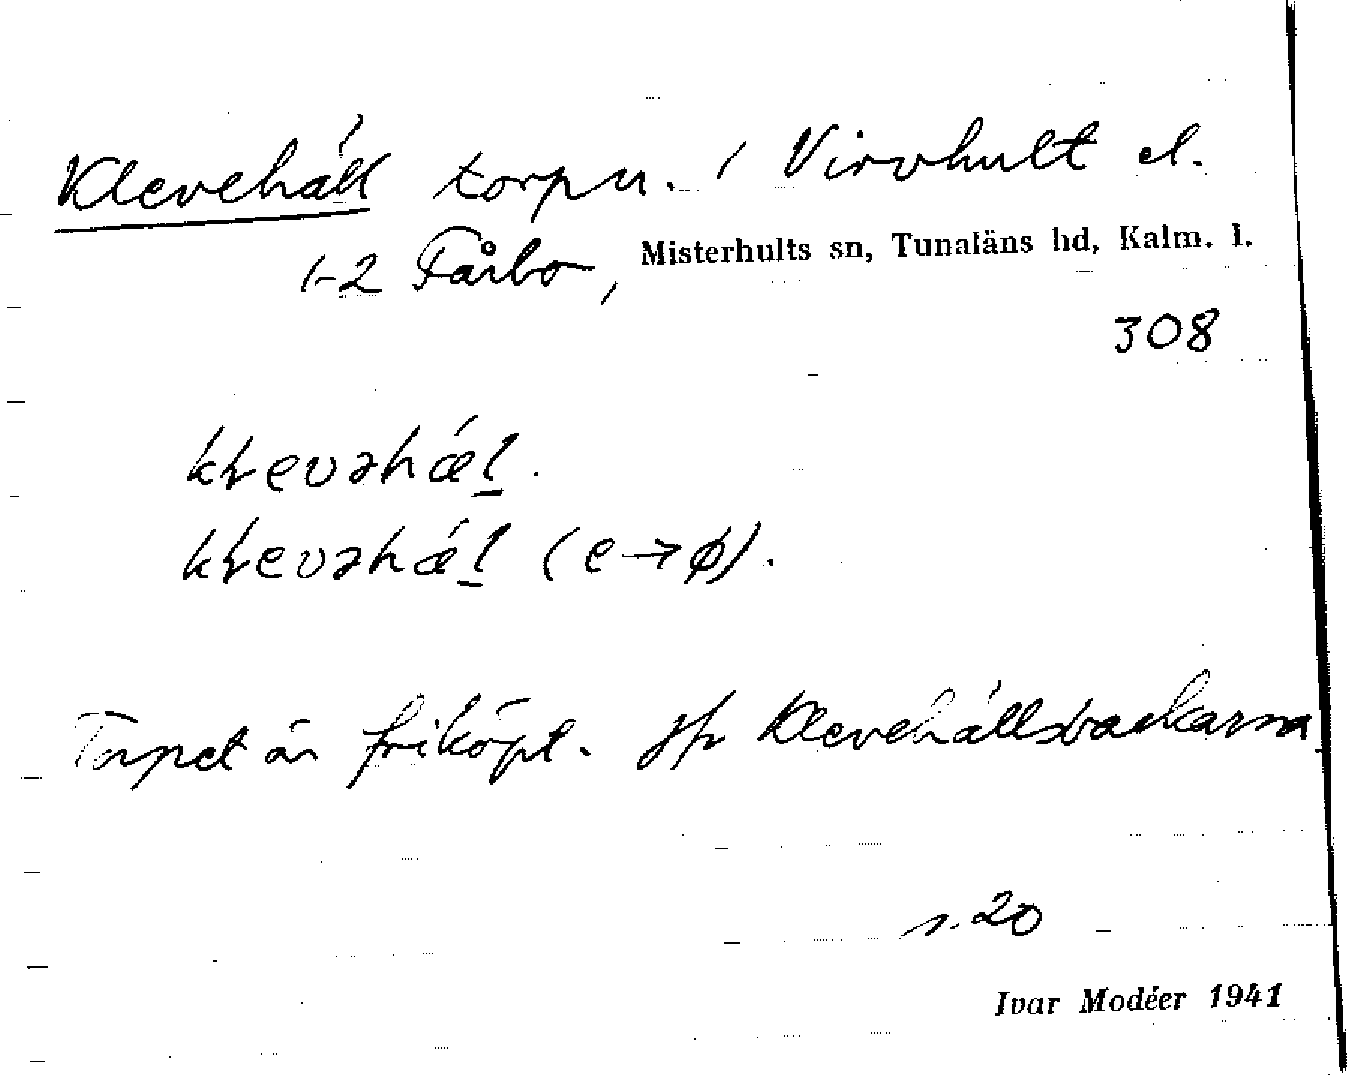 Klevehäll torpu. / Virvhult el.
1-2 Fårbo, Misterhults sn, Tunaläns hd, Kalm. l.
308
kɫevəhǽl.
kɫevəhǽl (e→ø).
Torpet är friköpt. Jfr Klevehällsbackarna
s. 20
Ivar Modéer 1941